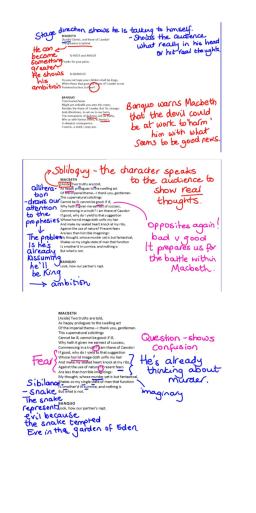 Stage direction shows he is talking to himself.
- Shows the audience
what really in his head
or his real thoughts.
He can
become
something
greater!
He shows
his
ambition
MACBETH
BANQUO
Banquo warns Macbeth
that the devil could
be at work to harm
him with what
seems to be good news.
Soliloquy - the character speaks
to the audience to
show real
thoughts.
MACBETH
[Aside] Two truths are told,
As happy prologues to the swelling act
Of the imperial theme.—I thank you, gentlemen.
This supernatural soliciting
Cannot be ill, cannot be good: if ill,
Why hath it given me earnest of success,
Commencing in a truth? I am thane of Cawdor:
If good, why do I yield to that suggestion
Whose horrid image doth unfix my hair
And make my seated heart knock at my ribs,
Against the use of nature? Present fears
Are less than horrible imaginings:
My thought, whose murder yet is but fantastical,
Shakes so my single state of man that function
Is smother'd in surmise, and nothing is
But what is not.
BANQUO
Look, how our partner's rapt.
alliteration
- draws our
attention
to the
prophesies
The problem
is he's
already
assuming
he'll
be King
→ ambition
Opposites again!
bad v good
It prepares us for
the battle within
Macbeth.
MACBETH
[Aside] Two truths are told,
As happy prologues to the swelling act
Of the imperial theme.—I thank you, gentlemen.
This supernatural soliciting
Cannot be ill, cannot be good: if ill,
Why hath it given me earnest of success,
Commencing in a truth? I am thane of Cawdor:
If good, why do I yield to that suggestion
Whose horrid image doth unfix my hair
And make my seated heart knock at my ribs,
Against the use of nature? Present fears
Are less than horrible imaginings:
My thought, whose murder yet is but fantastical,
Shakes so my single state of man that function
Is smother'd in surmise, and nothing is
But what is not.
BANQUO
Look, how our partner's rapt.
Question - shows
confusion
Fear
He's already
thinking about
murder.
imaginary
Sibilance
- snake
The snake
represents
evil because
the snake tempted
Eve in the garden of Eden